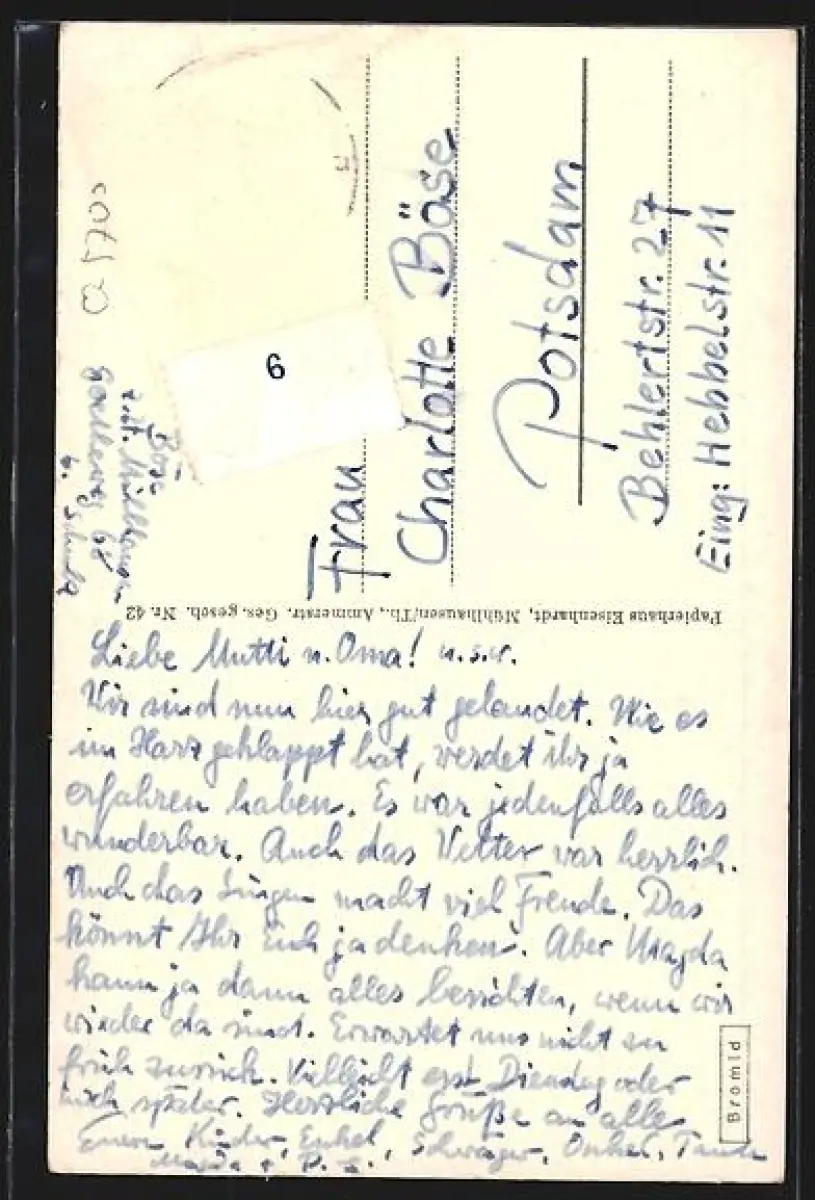 Liebe Mutti u. Oma! u.s.w.
Wir sind nun hier gut gelandet. Wie es
im Harz geklappt hat, werdet ihr ja
erfahren haben. Es war jedenfalls alles
wunderbar. Auch das Wetter war herrlich.
Auch das Singen macht viel Freude. Das
könnt Ihr Euch ja denken. Aber Magda
kann ja dann alles berichten, wenn wir
wieder da sind. Erwartet uns nicht zu
früh zurück. Vielleicht erst Dienstag oder
noch später. Herzliche Grüße an alle
Eure Kinder, Enkel, Schwager, Onkel, Tante
Magda +
Frau
Charlotte Böse
Potsdam
Behlertstr. 27
Eing: Hebbelstr. 11
Böse
z.Zt. Mühlhausen
Goetheweg 68
b. Schulz
9
Papierhaus Eisenhardt, Mühlhausen/Th., Ammerstr. Ges. gesch. Nr. 42
Bromid